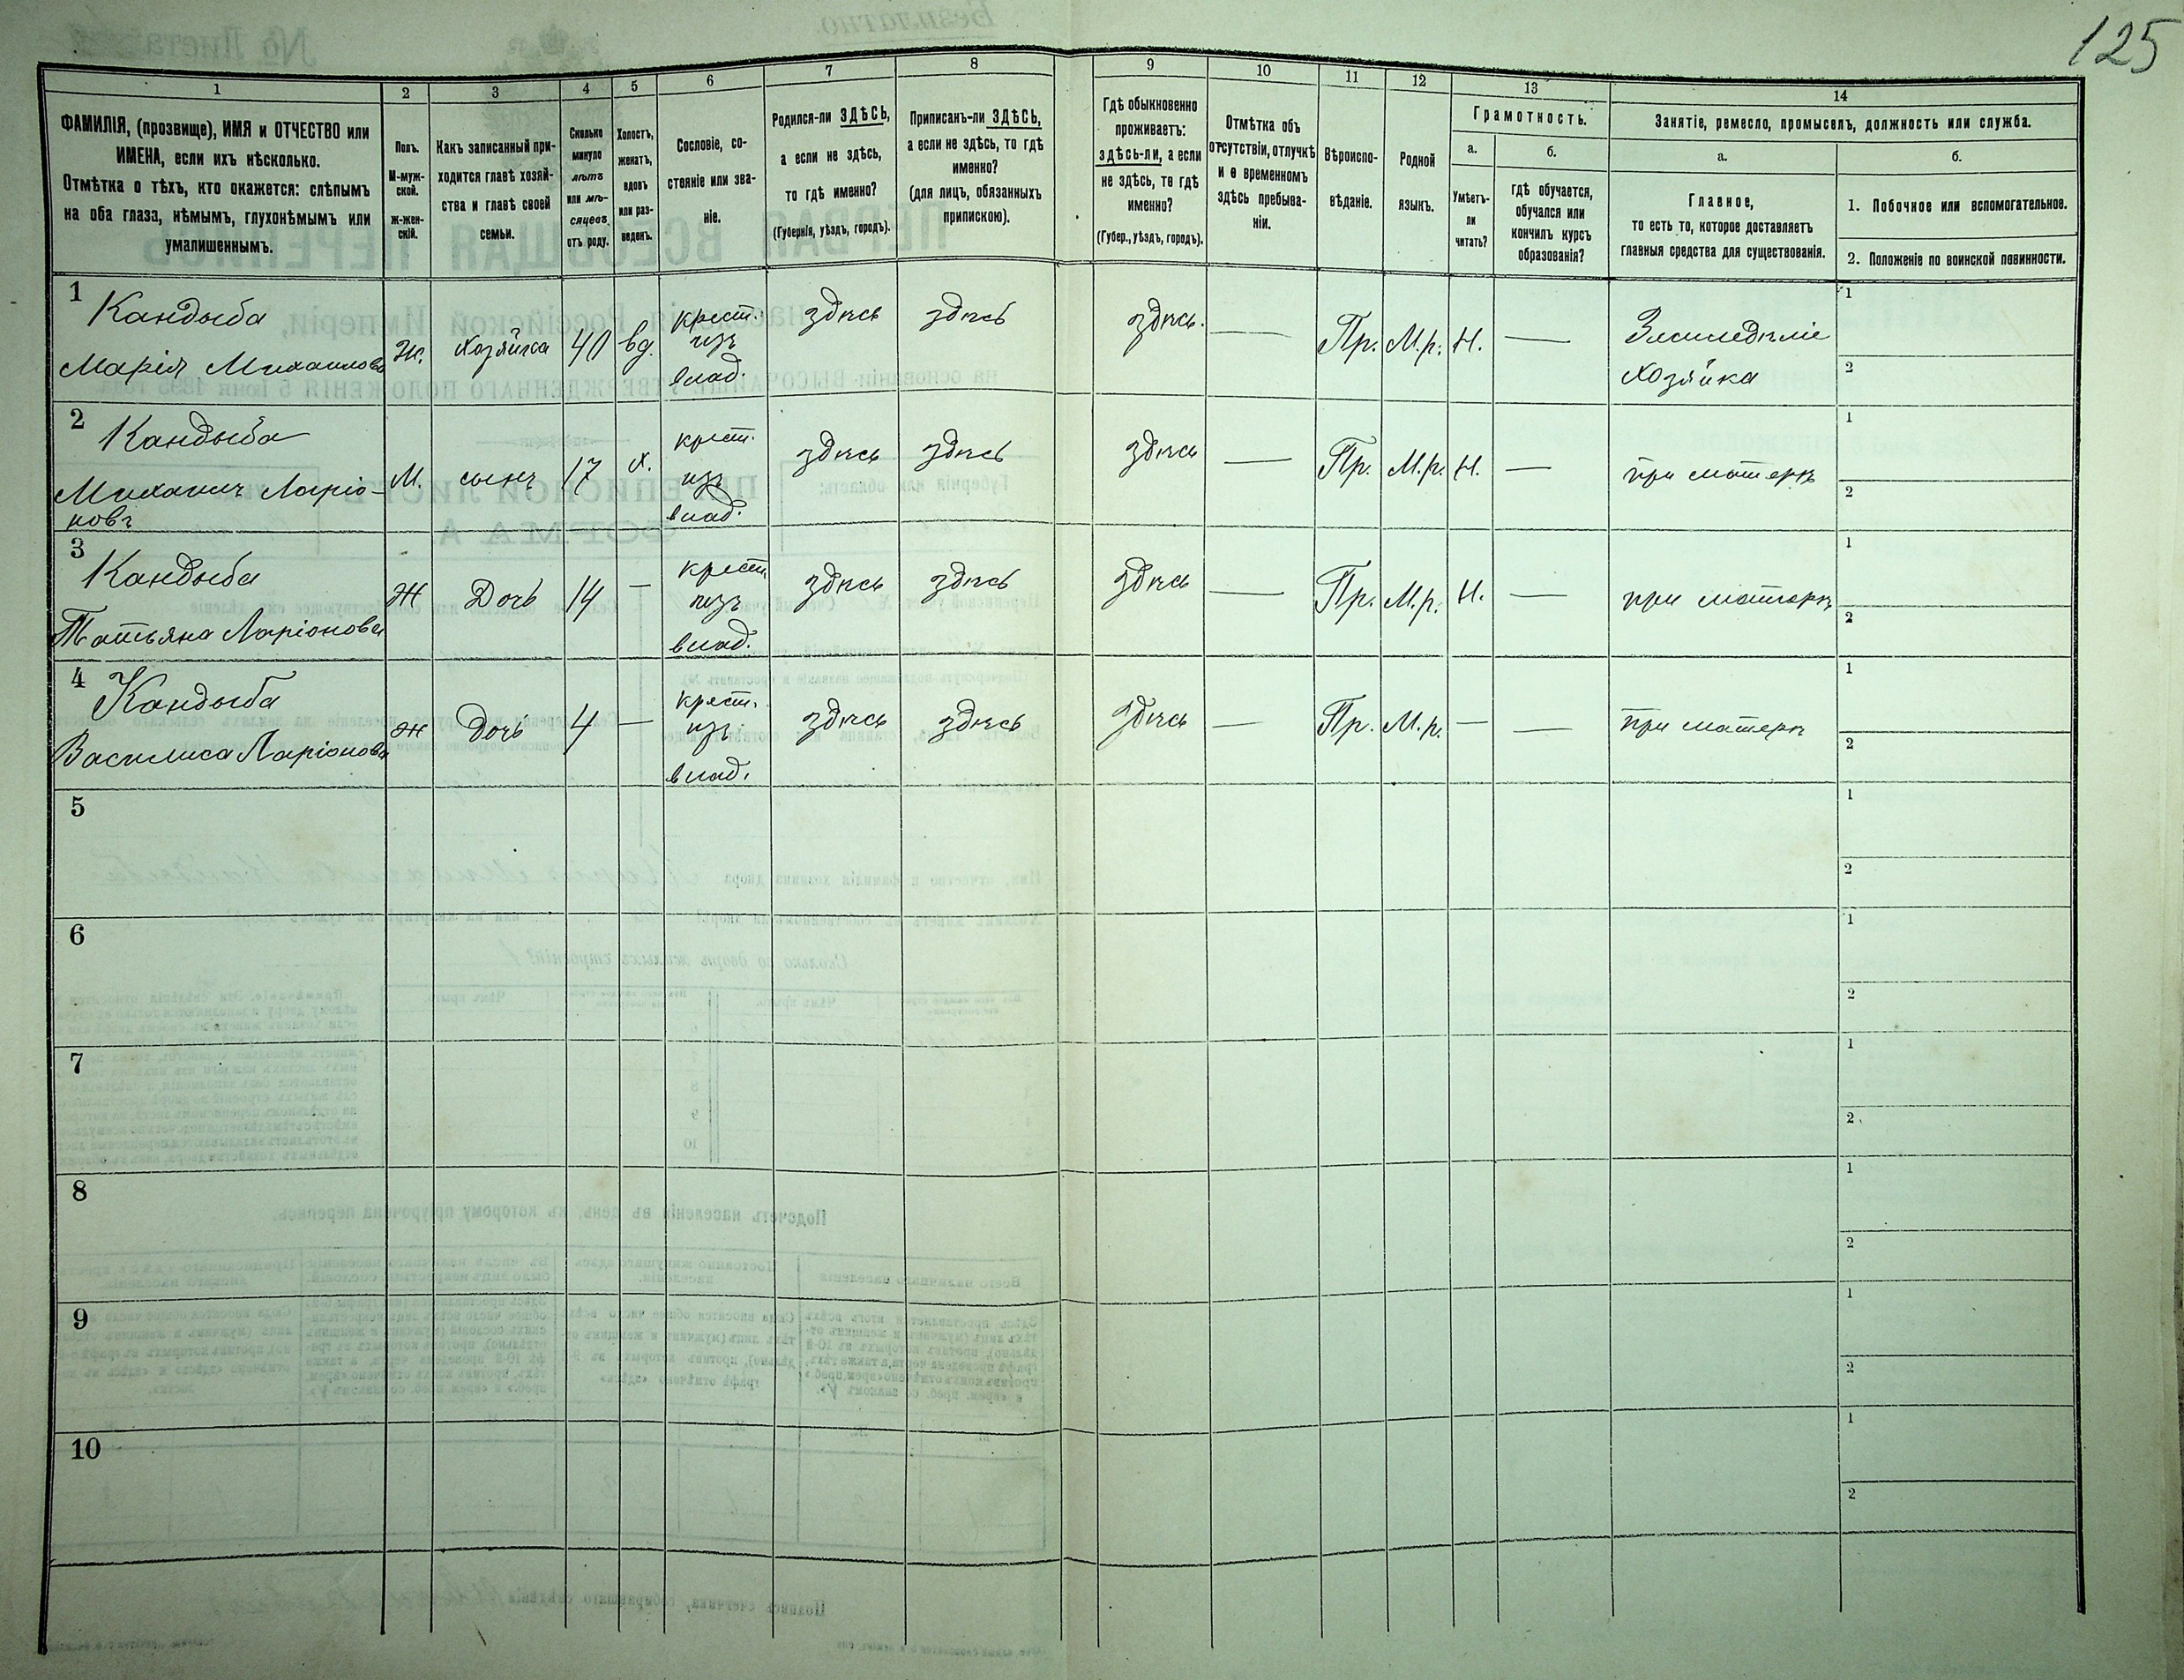 125
1
2
3
4
5
6
7
8
9
10
11
12
13
14
ФАМИЛІЯ, (прозвище), ИМЯ и ОТЧЕСТВО или
ИМЕНА, если ихъ нѣсколько.
Отмѣтка о тѣхъ, кто окажется: слѣпымъ
на оба глаза, нѣмымъ, глухонѣмымъ или
умалишеннымъ.
Полъ.
М-муж-
ской.
ж-жен-
скій.
Какъ записанный при-
ходится главѣ хозяй-
ства и главѣ своей
семьи.
Сколько
минуло
лѣтъ
или мѣ-
сяцевъ
отъ роду.
Холостъ,
женатъ,
вдовъ
или раз-
веденъ.
Сословіе, со-
стояніе или зва-
ніе.
Родился-ли ЗДѢСЬ,
а если не здѣсь,
то гдѣ именно?
(Губернія, уѣздъ, городъ).
Приписанъ-ли ЗДѢСЬ,
а если не здѣсь, то гдѣ
именно?
(для лицъ, обязанныхъ
припискою).
Гдѣ обыкновенно
проживаетъ:
здѣсь-ли, а если
не здѣсь, то гдѣ
именно?
(Губер., уѣздъ, городъ).
Отмѣтка объ
отсутствіи, отлучкѣ
и о временномъ
здѣсь пребыва-
ніи.
Вѣроиспо-
вѣданіе.
Родной
языкъ.
Грамотность.
а.
Умѣетъ-
ли
читать?
б.
гдѣ обучается,
обучался или
кончилъ курсъ
образованія?
Занятіе, ремесло, промыселъ, должность или служба.
а.
Главное,
то есть то, которое доставляетъ
главныя средства для существованія.
б.
1. Побочное или вспомогательное.
2. Положеніе по воинской повинности.
1
Кандыба
Марія Михаилова
Ж.
хозяйка
40
вд.
крест.
изъ
влад.
здѣсь
здѣсь
здѣсь.
—
Пр.
М.р.
Н.
—
Земледѣліе
хозяйка
1
2
2
Кандыба
Михаилъ Ларіо-
новъ
М.
сынъ
17
х.
крест.
изъ
влад.
здѣсь
здѣсь
здѣсь
—
Пр.
М.р.
Н.
—
при матерѣ
1
2
3
Кандыба
Татьяна Ларіонова
Ж
Дочь
14
—
крест.
изъ
влад.
здѣсь
здѣсь
здѣсь
—
Пр.
М.р.
Н.
—
при матерѣ
1
2
4
Кандыба
Василиса Ларіонова
Ж
Дочь
4
—
крест.
изъ
влад.
здѣсь
здѣсь
здѣсь
—
Пр.
М.р.
—
—
при матерѣ
1
2
5
1
2
6
1
2
7
1
2
8
1
2
9
1
2
10
1
2